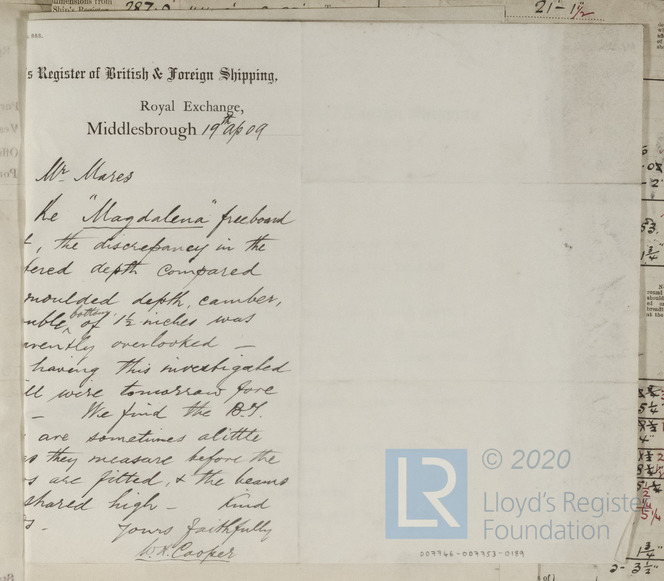 dimensions from
Ship's Register
287.0
21 - 1½
s Register of British & Foreign Shipping,
Royal Exchange,
Middlesbrough 19th Ap 09
Mr Mares
Re "Magdalena" freeboard
t, the discrepancy in the
tered depth compared
moulded depth, camber,
uble bottom, of 1½ inches was
rently overlooked -
having this investigated
ll wire tomorrow fore
- We find the B.T.
are sometimes a little
as they measure before the
s are fitted, & the beams
shared high - Kind
s. Yours faithfully
W.K. Cooper
© 2020
LR
Lloyd's Register
Foundation
007746-007753-0189
53.
1¾"
5¼
4"
5¼
1¾"
2 - 3½"